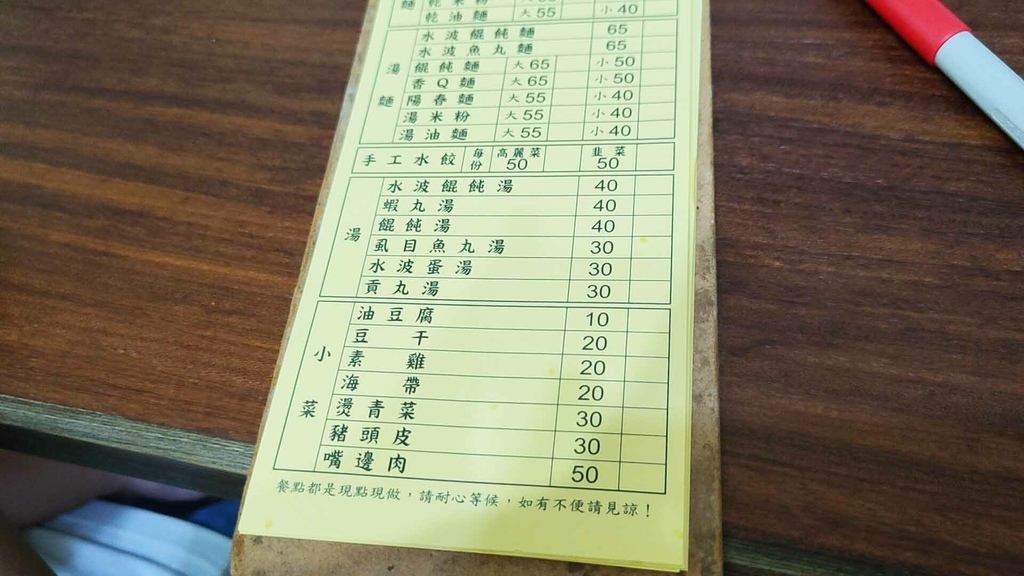 麵 乾米粉 大55
乾油麵 大55 小40
湯麵
水波餛飩麵 65
水波魚丸麵 65
餛飩麵 大65 小50
香Q麵 大65 小50
陽春麵 大55 小40
湯米粉 大55 小40
湯油麵 大55 小40
手工水餃 每份 高麗菜 50 韭菜 50
湯
水波餛飩湯 40
蝦丸湯 40
餛飩湯 40
虱目魚丸湯 30
水波蛋湯 30
貢丸湯 30
小菜
油豆腐 10
豆干 20
素雞 20
海帶 20
燙青菜 30
豬頭皮 30
嘴邊肉 50
餐點都是現點現做，請耐心等候，如有不便請見諒！